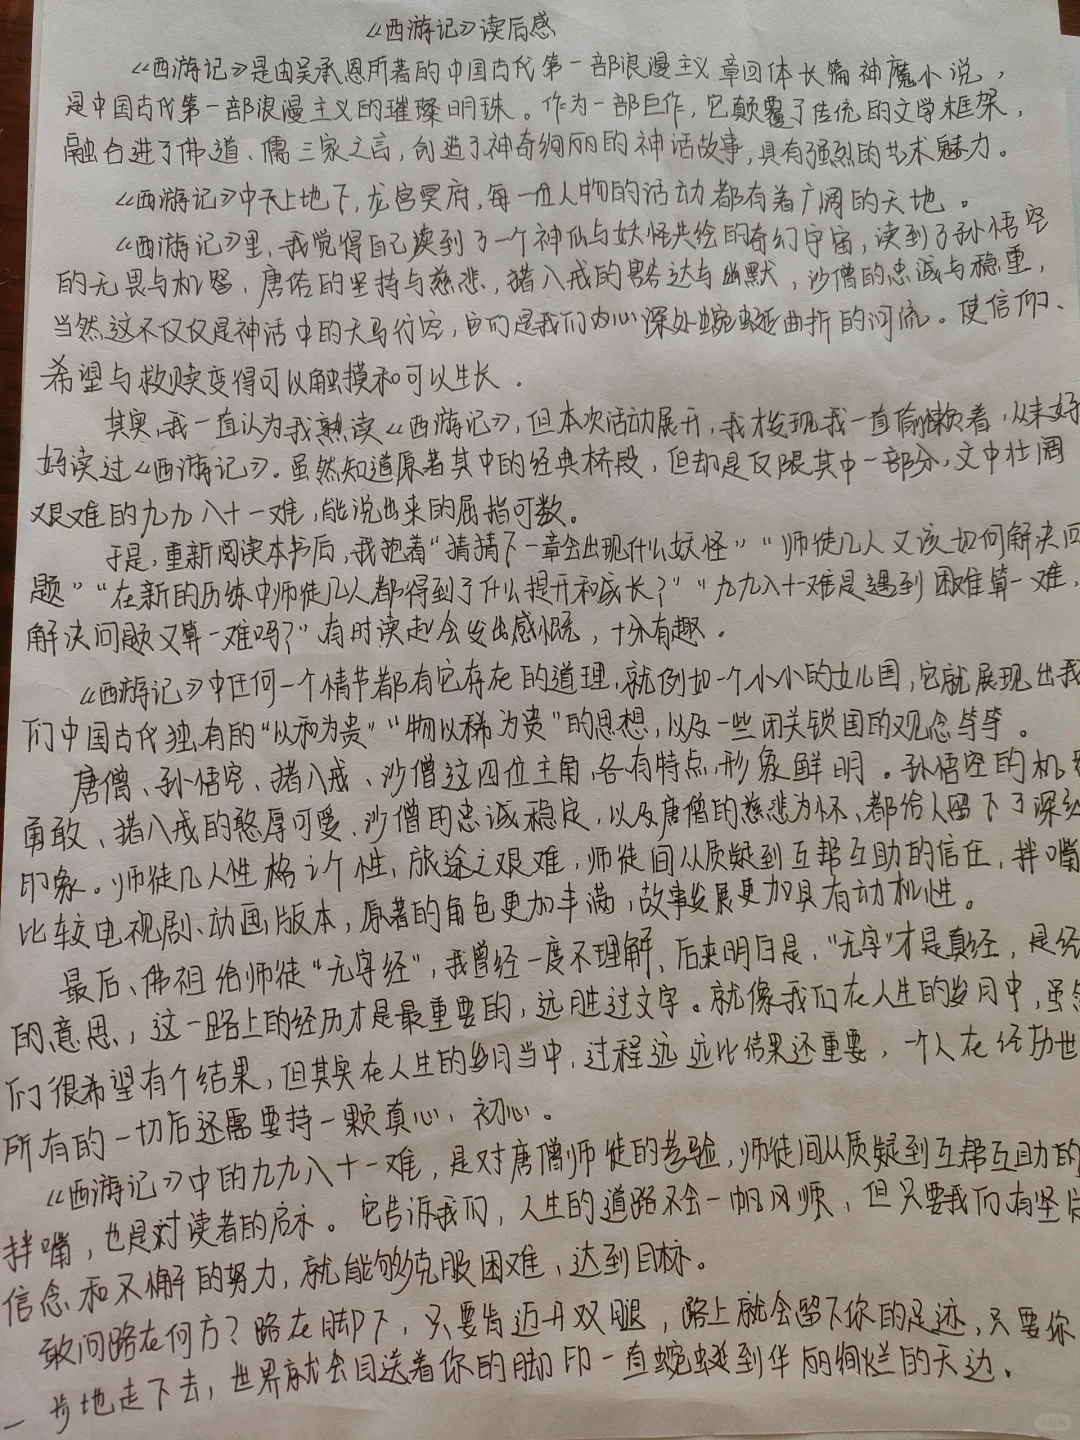 《西游记》读后感
《西游记》是由吴承恩所著的中国古代第一部浪漫主义章回体长篇神魔小说，
是中国古代第一部浪漫主义的璀璨明珠。作为一部巨作，它颠覆了传统的文学框架，
融合进了佛、道、儒三家之言，创造了神奇绚丽的神话故事，具有强烈的艺术魅力。
《西游记》中天上地下，龙宫冥府，每一位人物的活动都有着广阔的天地。
《西游记》里，我觉得自己读到了一个神仙与妖怪共绘的奇幻宇宙，读到了孙悟空
的无畏与机智，唐僧的坚持与慈悲，猪八戒的豁达与幽默，沙僧的忠诚与稳重，
当然这不仅仅是神话中的天马行空，它们是我们内心深处蜿蜒曲折的河流。使信仰、
希望与救赎变得可以触摸和可以生长。
其实，我一直认为我熟读《西游记》，但本次活动展开，我才发现我一直偷懒着，从未好
好读过《西游记》。虽然知道原著其中的经典桥段，但却是仅限其中一部分，文中壮阔
艰难的九九八十一难，能说出来的屈指可数。
于是，重新阅读本书后，我抱着“猜猜下一章会出现什么妖怪”“师徒几人又该如何解决问
题”“在新的历练中师徒几人都得到了什么提升和成长？”“九九八十难是遇到困难算一难，
解决问题又算一难吗？”有时读起会发出感慨，十分有趣。
《西游记》中任何一个情节都有它存在的道理，就例如一个小小的女儿国，它就展现出我
们中国古代独有的“以和为贵”“物以稀为贵”的思想，以及一些闭关锁国的观念等等。
唐僧、孙悟空、猪八戒、沙僧这四位主角，各有特点，形象鲜明。孙悟空的机
勇敢、猪八戒的憨厚可爱、沙僧的忠诚稳定，以及唐僧的慈悲为怀、都给人留下了深
印象。师徒几人性格个性，旅途之艰难，师徒间从质疑到互帮互助的信任，拌嘴
比较电视剧、动画版本，原著的角色更加丰满，故事发展更加具有动机性。
最后、佛祖给师徒“无字经”，我曾经一度不理解、后来明白是，“无字”才是真经，是经
的意思，这一路上的经历才是最重要的，远胜过文字。就像我们在人生的岁月中，虽
们很希望有个结果，但其实在人生的岁月当中，过程远远比结果还重要，一个人在经历世
所有的一切后还需要持一颗真心，初心。
《西游记》中的九九八十一难，是对唐僧师徒的考验，师徒间从质疑到互帮互助的
拌嘴，也是对读者的启示。它告诉我们，人生的道路不会一帆风顺，但只要我们有坚
信念和不懈的努力，就能够克服困难，达到目标。
敢问路在何方？路在脚下，只要肯迈开双腿，路上就会留下你的足迹，只要你
一步地走下去，世界就会目送着你的脚印一直蜿蜒到华丽绚烂的天边。